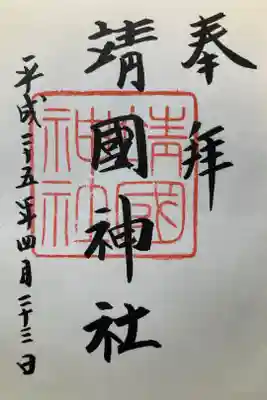 奉拝
靖國神社
平成二十五年四月二十三日
靖國
神社